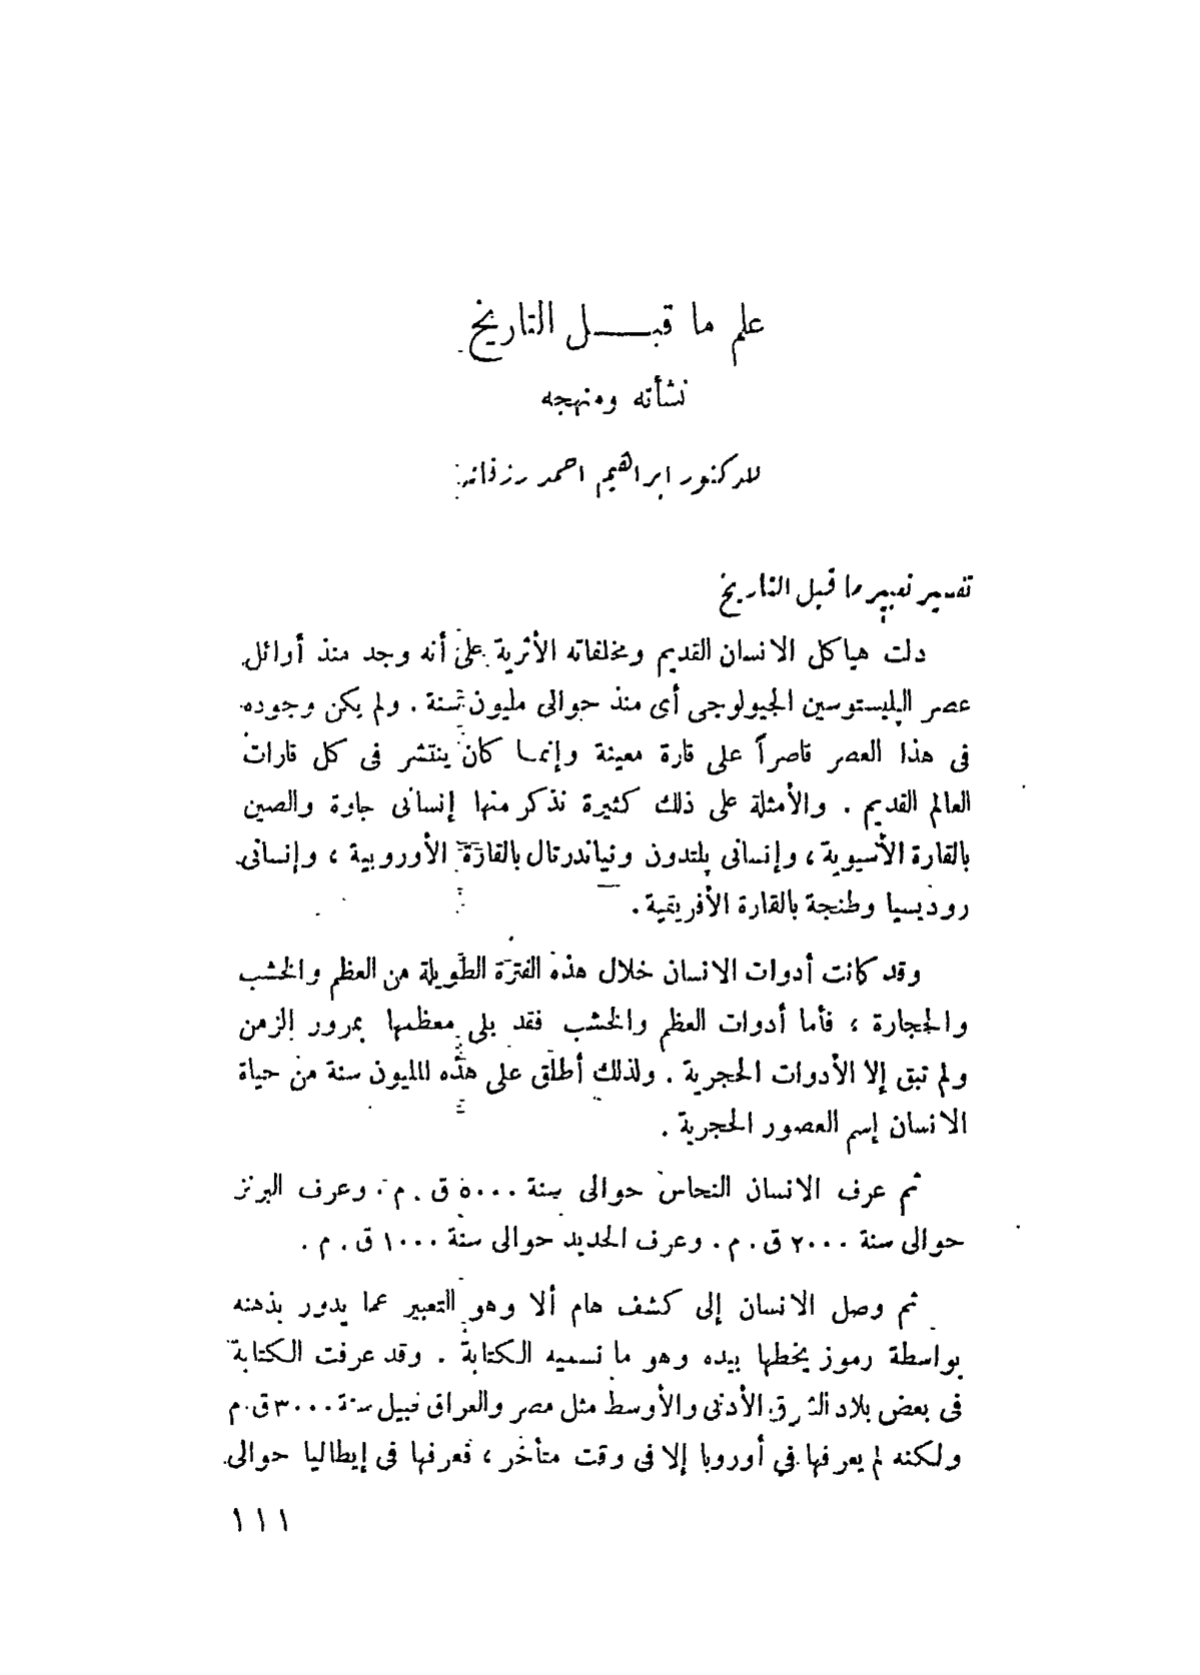 علم ما قبـــــل التاريخ
نشأته ومنهجه
للدكتور ابراهيم احمد رزقانه
تفسير تعبير ما قبل التاريخ
دلت هياكل الانسان القديم ومخلفاته الأثرية على أنه وجد منذ أوائل
عصر البليستوسين الجيولوجى أى منذ حوالى مليون سنة . ولم يكن وجوده
فى هذا العصر قاصراً على قارة معينة وإنما كان ينتشر فى كل قارات
العالم القديم . والأمثلة على ذلك كثيرة نذكر منها إنسانى جاوة والصين
بالقارة الأسيوية ، وإنسانى پلتدون ونياندرتال بالقارة الأوروبية ، وإنسانى
روديسيا وطنجة بالقارة الأفريقية .
وقد كانت أدوات الانسان خلال هذه الفترة الطويلة من العظم والخشب
والحجارة ، فأما أدوات العظم والخشب فقد بلى معظمها بمرور الزمن
ولم تبق إلا الأدوات الحجرية . ولذلك أطلق على هذه المليون سنة من حياة
الانسان إسم العصور الحجرية .
ثم عرف الانسان النحاس حوالى سنة ٥٠٠٠ ق . م . وعرف البرنز
حوالى سنة ٢٠٠٠ ق . م . وعرف الحديد حوالى سنة ١٠٠٠ ق . م .
ثم وصل الانسان إلى كشف هام ألا وهو التعبير عما يدور بذهنه
بواسطة رموز يخطها بيده وهو ما نسميه الكتابة . وقد عرفت الكتابة
فى بعض بلاد الشرق الأدنى والأوسط مثل مصر والعراق قبيل سنة ٣٠٠٠ ق . م
ولكنه لم يعرفها في أوروبا إلا فى وقت متأخر ، فعرفها فى إيطاليا حوالى
١١١